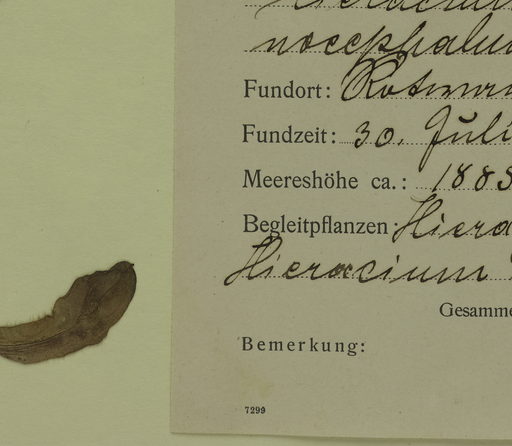 nocephalu
Fundort: Rotwan
Fundzeit: 30. Juli
Meereshöhe ca.: 1885
Begleitpflanzen: Hiera
Hieracium
Gesamme
Bemerkung:
7299